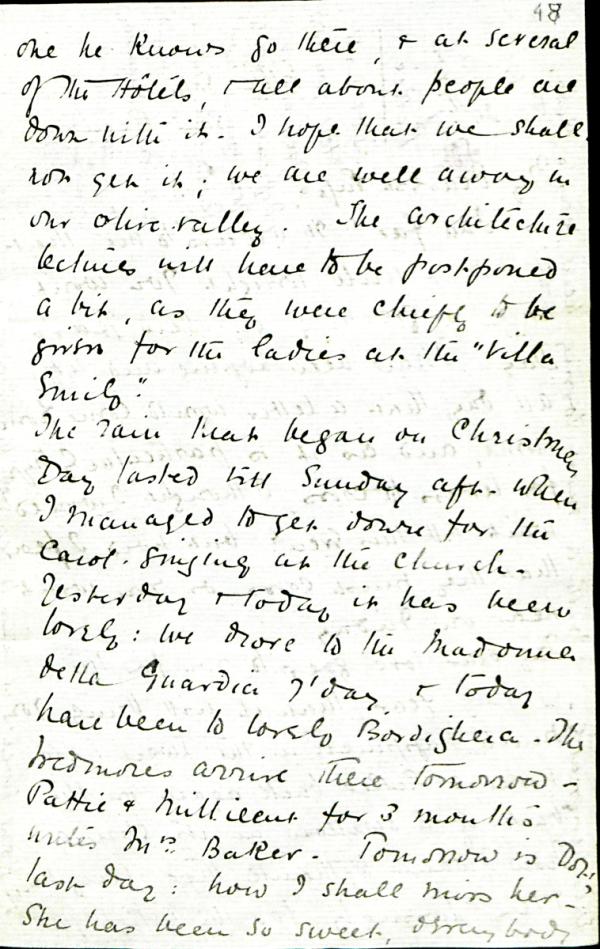 48
one he knows go there, & at several
of the Hôtels, & all about people are
down with it. I hope that we shall
not get it; we are well away in
our olive valley. The architecture
lectures will have to be postponed
a bit, as they were chiefly to be
given for the ladies at the "Villa
Emily."
The rain that began on Christmas
Day lasted till Sunday aft. when
I managed to get down for the
Carol-singing at the church.
Yesterday & today it has been
lovely: we drove to the Madonna
della Guardia y'day, & today
have been to lovely Bordighera. The
arrive there tomorrow -
Pattie & Millicent for 3 months
writes Mrs Baker. Tomorrow is
last day: how I shall miss her -
She has been so sweet, & everybody